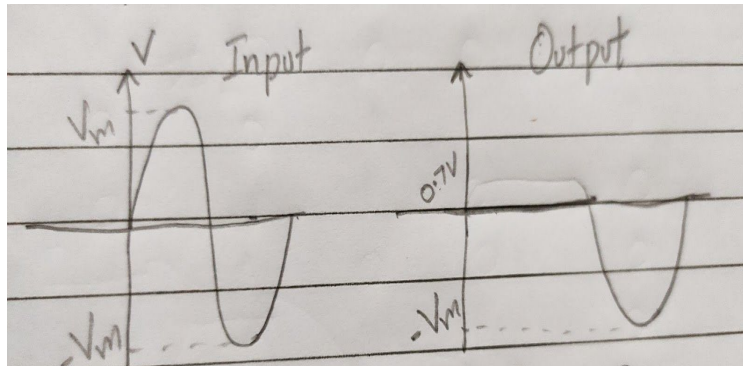 V Input
Output
Vm
0.7V
-Vm
-Vm